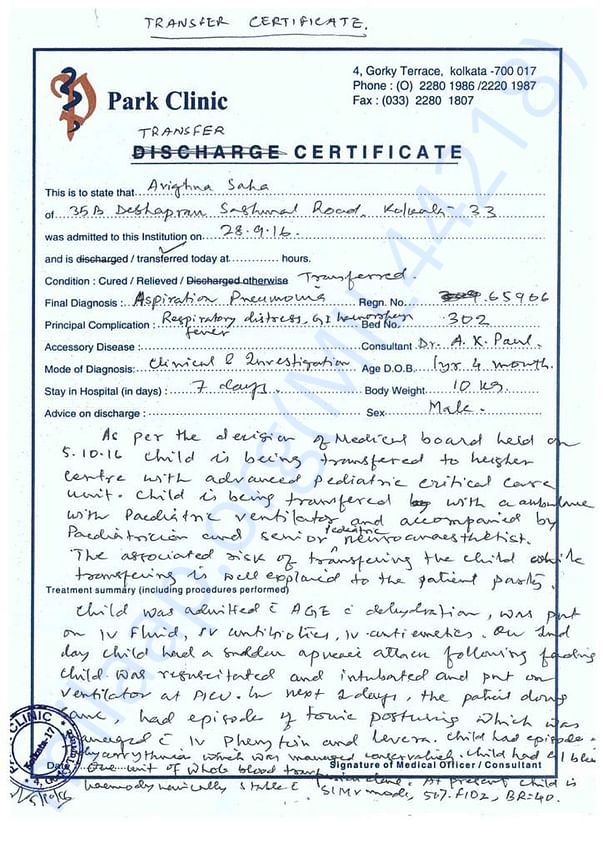 TRANSFER CERTIFICATE.
Park Clinic
4, Gorky Terrace, kolkata -700 017
Phone : (O) 2280 1986 /2220 1987
Fax : (033) 2280 1807
TRANSFER
DISCHARGE CERTIFICATE
This is to state that Avighna Saha
of 35B Deshapran Sashmal Road, Kolkata- 33
was admitted to this Institution on 28.9.16.
and is discharged / transferred today at hours.
Condition : Cured / Relieved / Discharged otherwise Transferred.
Final Diagnosis : Aspiration Pneumonia Regn. No. 65906
Principal Complication : Respiratory distress, GI hemorrhage fever Bed No. 302
Accessory Disease : Consultant Dr. A. K. Paul.
Mode of Diagnosis: Clinical & Investigation Age D.O.B. 1yr 4 month.
Stay in Hospital (in days) : 7 days. Body Weight 10 kg.
Advice on discharge : Sex Male.
As per the decision of Medical board held on
5.10.16 child is being transferred to heigher
centre with advanced Pediatric critical care
unit. Child is being transfered with a ambulance
with Paediatric ventilator and accompanied by
Paediatrician and senior Pediatric neuroanaesthetist.
The associated risk of transfering the child while
transfering is well explained to the patient party.
Treatment summary (including procedures performed)
Child was admitted c̄ AGE c̄ dehydration, was put
on IV Fluid, IV antibiotics, IV antiemetics. On 2nd
day child had a sudden apnoeic attack following feeding
child was resuscitated and intubated and put on
ventilator at PICU. In next 2 days, the patient doing
same, had episode of tonic posturing which was
managed c̄ IV Phenytoin and Levera. Child had episode
arrythmia which was managed conservatively. Child had GI bleed
Date One unit of whole blood transfusion done. At present child is
Signature of Medical Officer / Consultant
haemodynamically stable c̄ SIMV mode, 50% FIO2, BR=40.
CLINIC
Kolkata-17
5/10/16